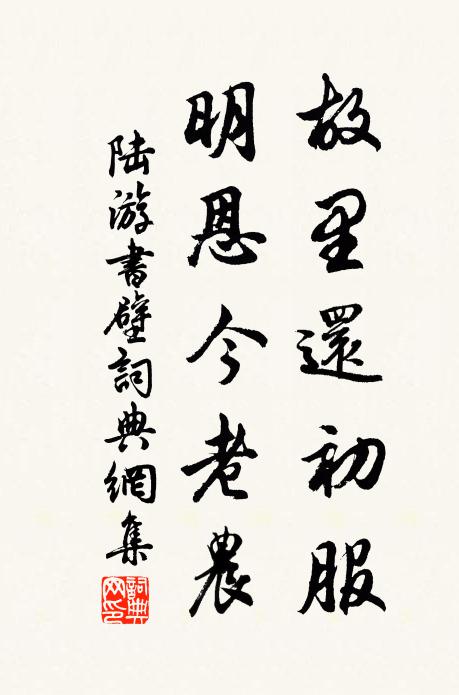 故里還初服
明恩今老農
陸游書壁詞典網集
詞典网印